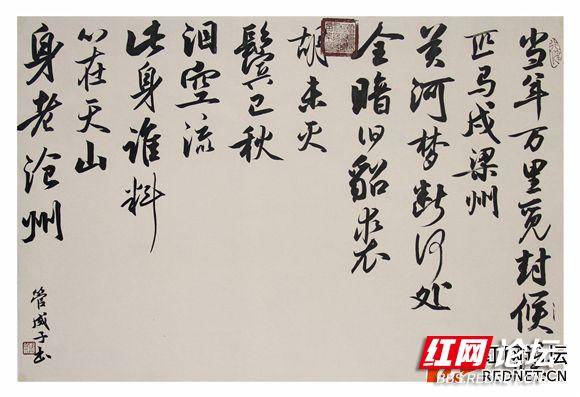 当年万里觅封候
匹马戍梁州
关河梦断何处
尘暗旧貂裘
胡未灭
鬓已秋
泪空流
此身谁料
心在天山
身老沧州
管成子书
红网论坛
红网论坛
REDNET.CN